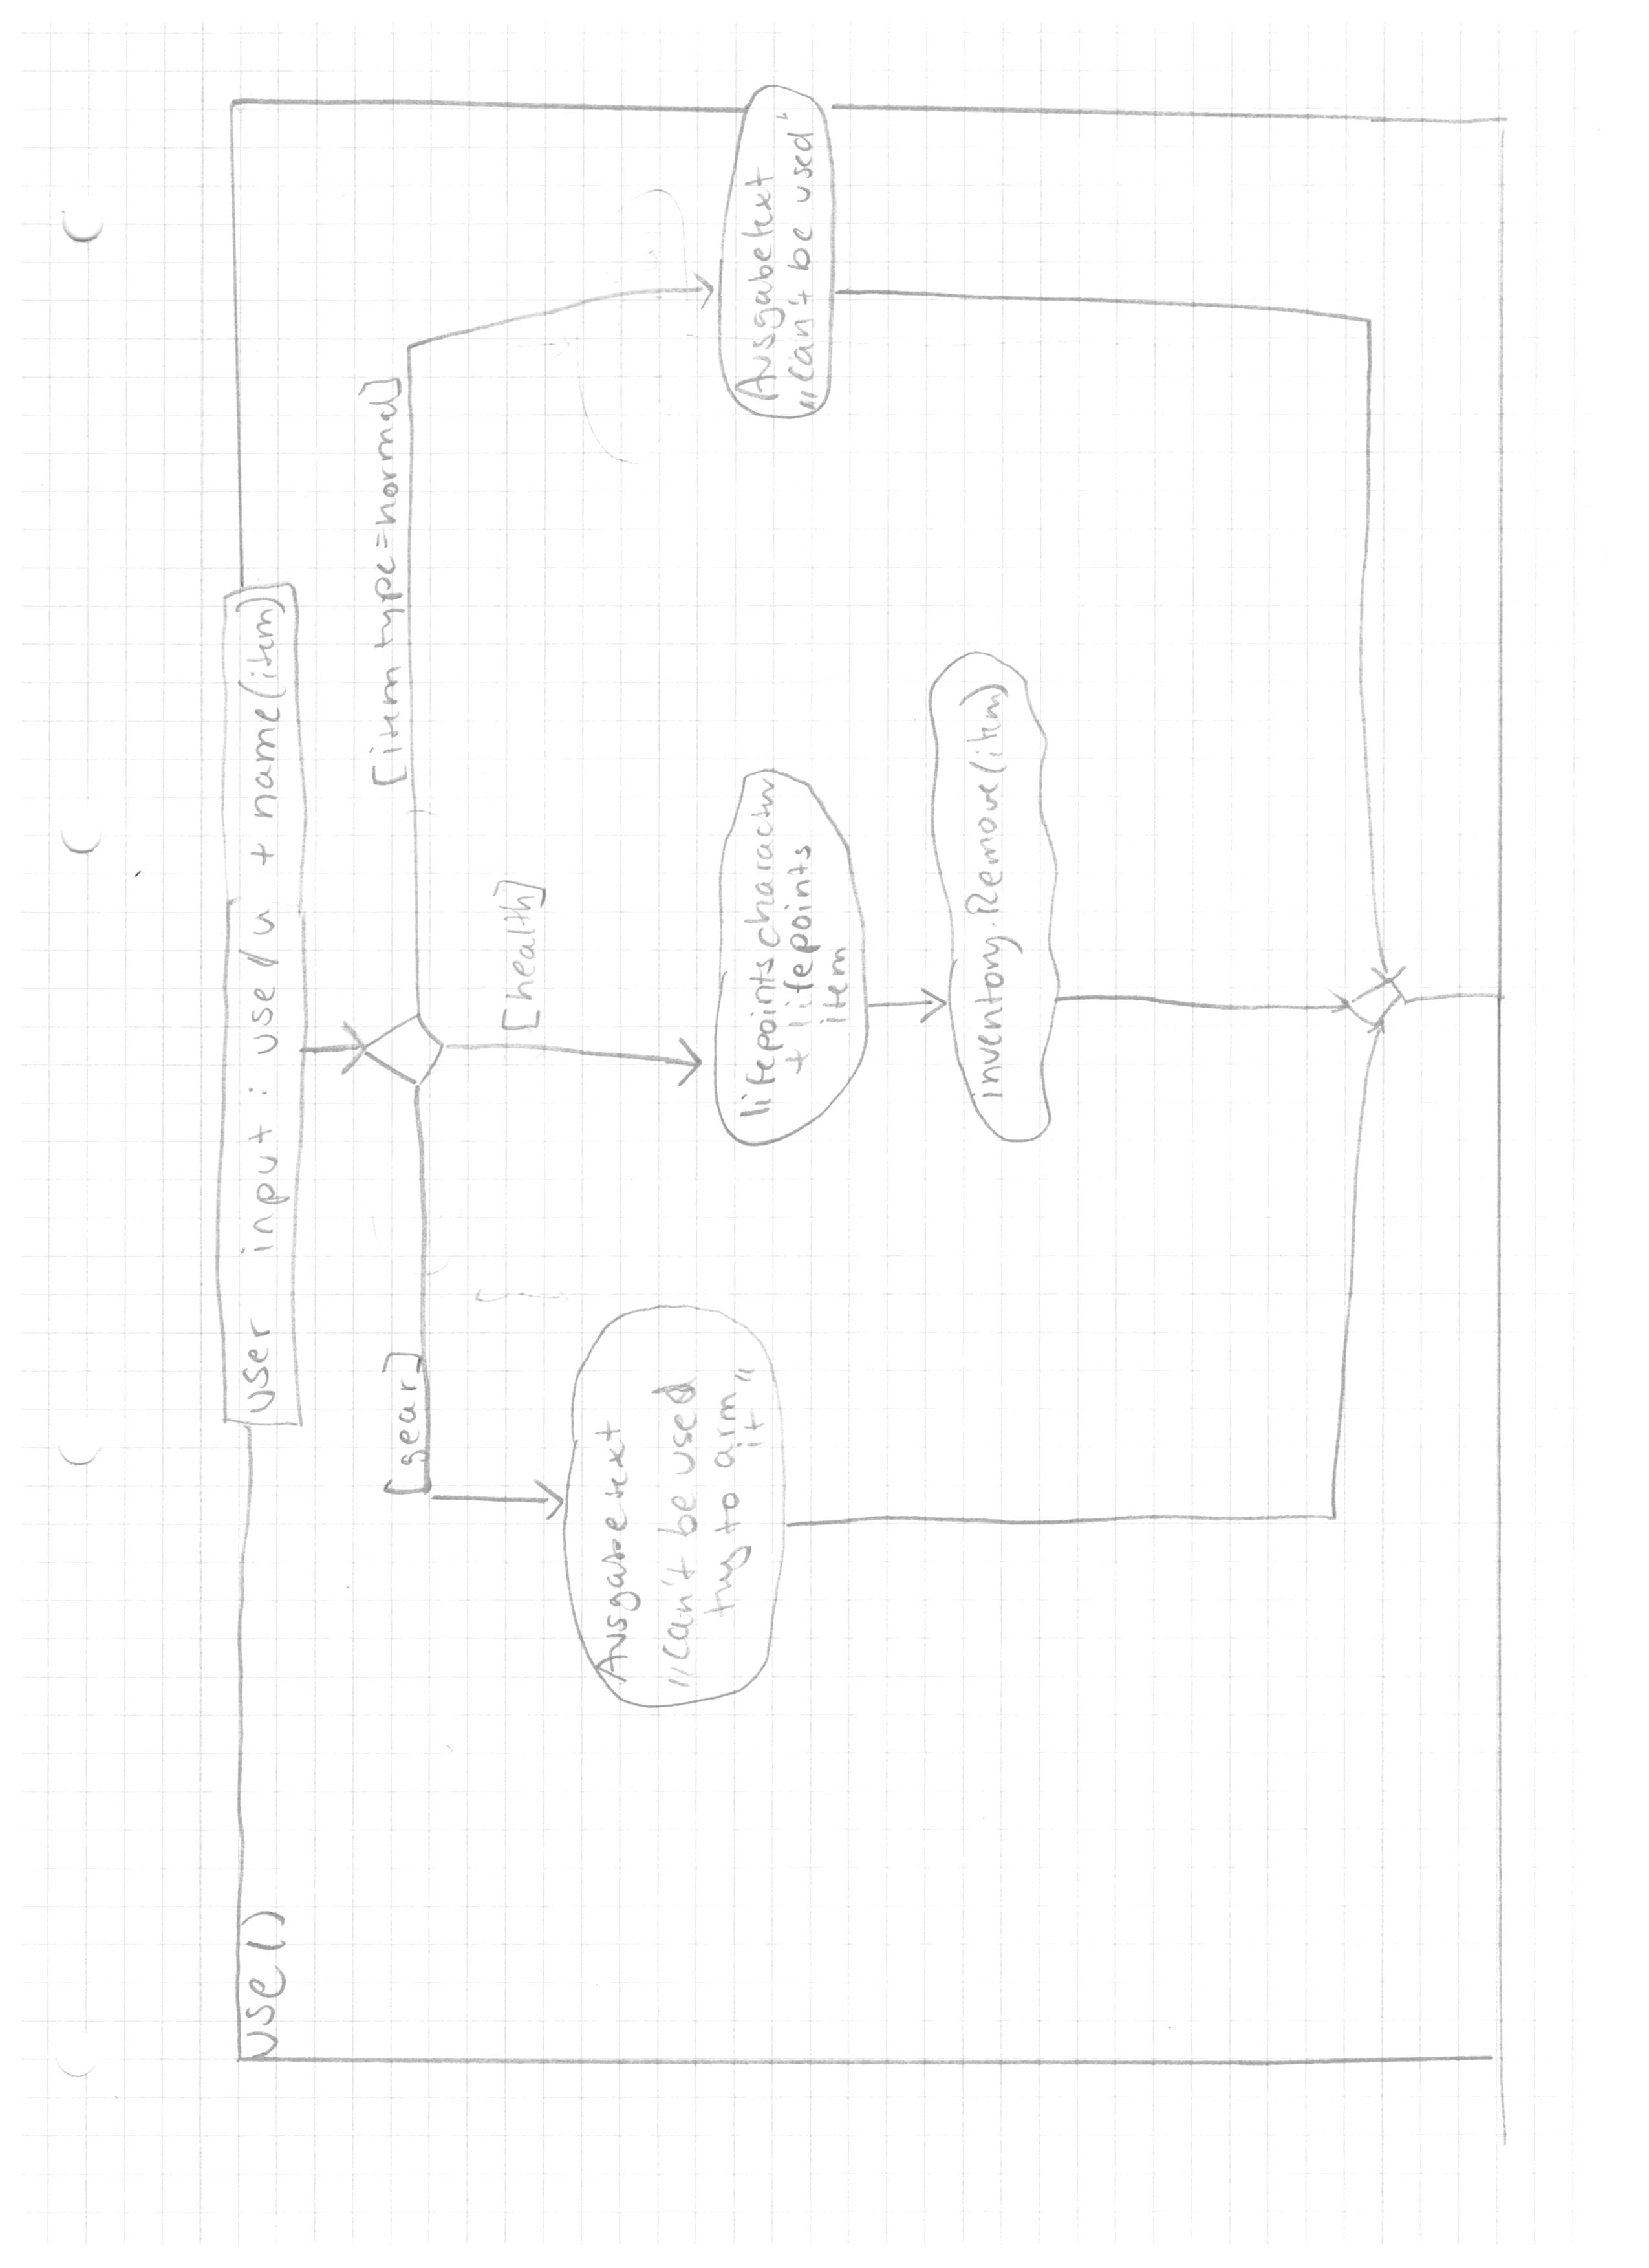 use()
user input: use/u + name(item)
[gear]
[item type=normal]
[health]
Ausgabetext
„can't be used
try to arm
it“
lifepoints character
+ lifepoints
item
Ausgabetext
„can't be used“
inventory.Remove(item)